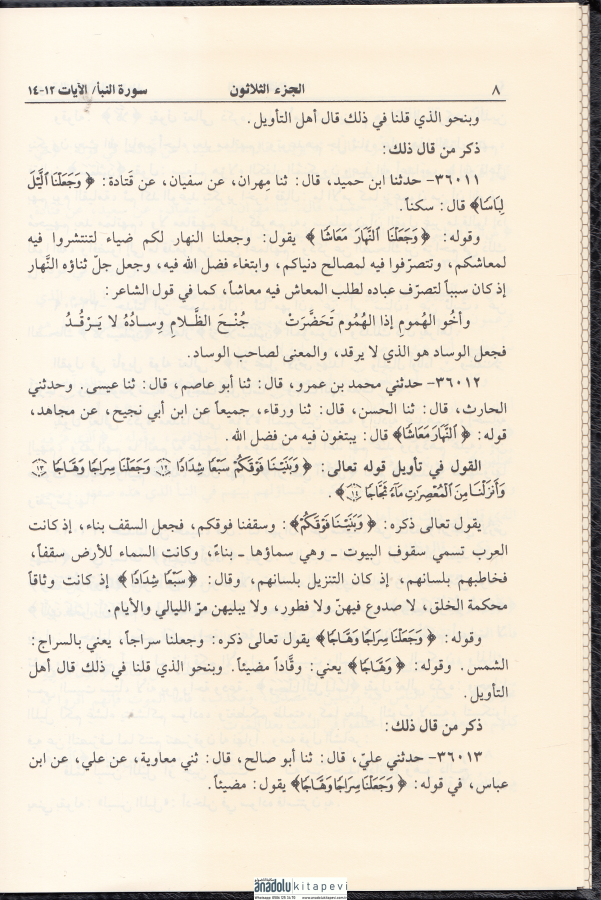 ٨ الجزء الثلاثون سورة النبأ/ الآيات ١٢-١٤
وبنحو الذي قلنا في ذلك قال أهل التأويل.
ذكر من قال ذلك:
٣٦٠١١- حدثنا ابن حميد، قال: ثنا مِهران، عن سفيان، عن قَتادة: ﴿ وَجَعَلْنَا ٱلَّيْلَ
لِبَاسًا﴾ قال: سكناً.
وقوله: ﴿وَجَعَلْنَا ٱلنَّهَارَ مَعَاشًا ﴾ يقول: وجعلنا النهار لكم ضياء لتنتشروا فيه
لمعاشكم، وتتصرّفوا فيه لمصالح دنياكم، وابتغاء فضل الله فيه، وجعل جلّ ثناؤه النَّهار
إذ كان سبباً لتصرّف عباده لطلب المعاش فيه معاشاً، كما في قول الشاعر:
وأخُو الهُمومِ إذا الهُمُوم تَحَضَّرَتْ جُنْـحَ الظَّـلامِ وِسـادُهُ لا يَـرْقُـدُ
فجعل الوساد هو الذي لا يرقد، والمعنى لصاحب الوساد.
٣٦٠١٢- حدثني محمد بن عمرو، قال: ثنا أبو عاصم، قال: ثنا عيسى. وحدثني
الحارث، قال: ثنا الحسن، قال: ثنا ورقاء، جميعاً عن ابن أبي نجيح، عن مجاهد،
قوله: ﴿ ٱلنَّهَارَ مَعَاشًا﴾ قال: يبتغون فيه من فضل الله.
القول في تأويل قوله تعالى: ﴿ وَبَنَيْنَا فَوْقَكُمْ سَبْعًا شِدَادًا ١٢ وَجَعَلْنَا سِرَاجًا وَهَّاجًا ١٣
وَأَنزَلْنَا مِنَ ٱلْمُعْصِرَٰتِ مَآءً ثَجَّاجًا ١٤﴾.
يقول تعالى ذكره: ﴿ وَبَنَيْنَا فَوْقَكُمْ﴾: وسقفنا فوقكم، فجعل السقف بناء، إذ كانت
العرب تسمي سقوف البيوت ـ وهي سماؤها ـ بناءً، وكانت السماء للأرض سقفاً،
فخاطبهم بلسانهم، إذ كان التنزيل بلسانهم، وقال: ﴿سَبْعًا شِدَادًا ﴾ إذ كانت وثاقاً
محكمة الخلق، لا صدوع فيهنّ ولا فطور، ولا يبليهن مرّ الليالي والأيام.
وقوله: ﴿ وَجَعَلْنَا سِرَاجًا وَهَّاجًا﴾ يقول تعالى ذكره: وجعلنا سراجاً، يعني بالسراج:
الشمس. وقوله: ﴿ وَهَّاجًا﴾ يعني: وقَّاداً مضيئاً. وبنحو الذي قلنا في ذلك قال أهل
التأويل.
ذكر من قال ذلك:
٣٦٠١٣- حدثني عليّ، قال: ثنا أبو صالح، قال: ثني معاوية، عن علي، عن ابن
عباس، في قوله: ﴿ وَجَعَلْنَا سِرَاجًا وَهَّاجًا﴾ يقول: مضيئاً.
anadolu kitapevi